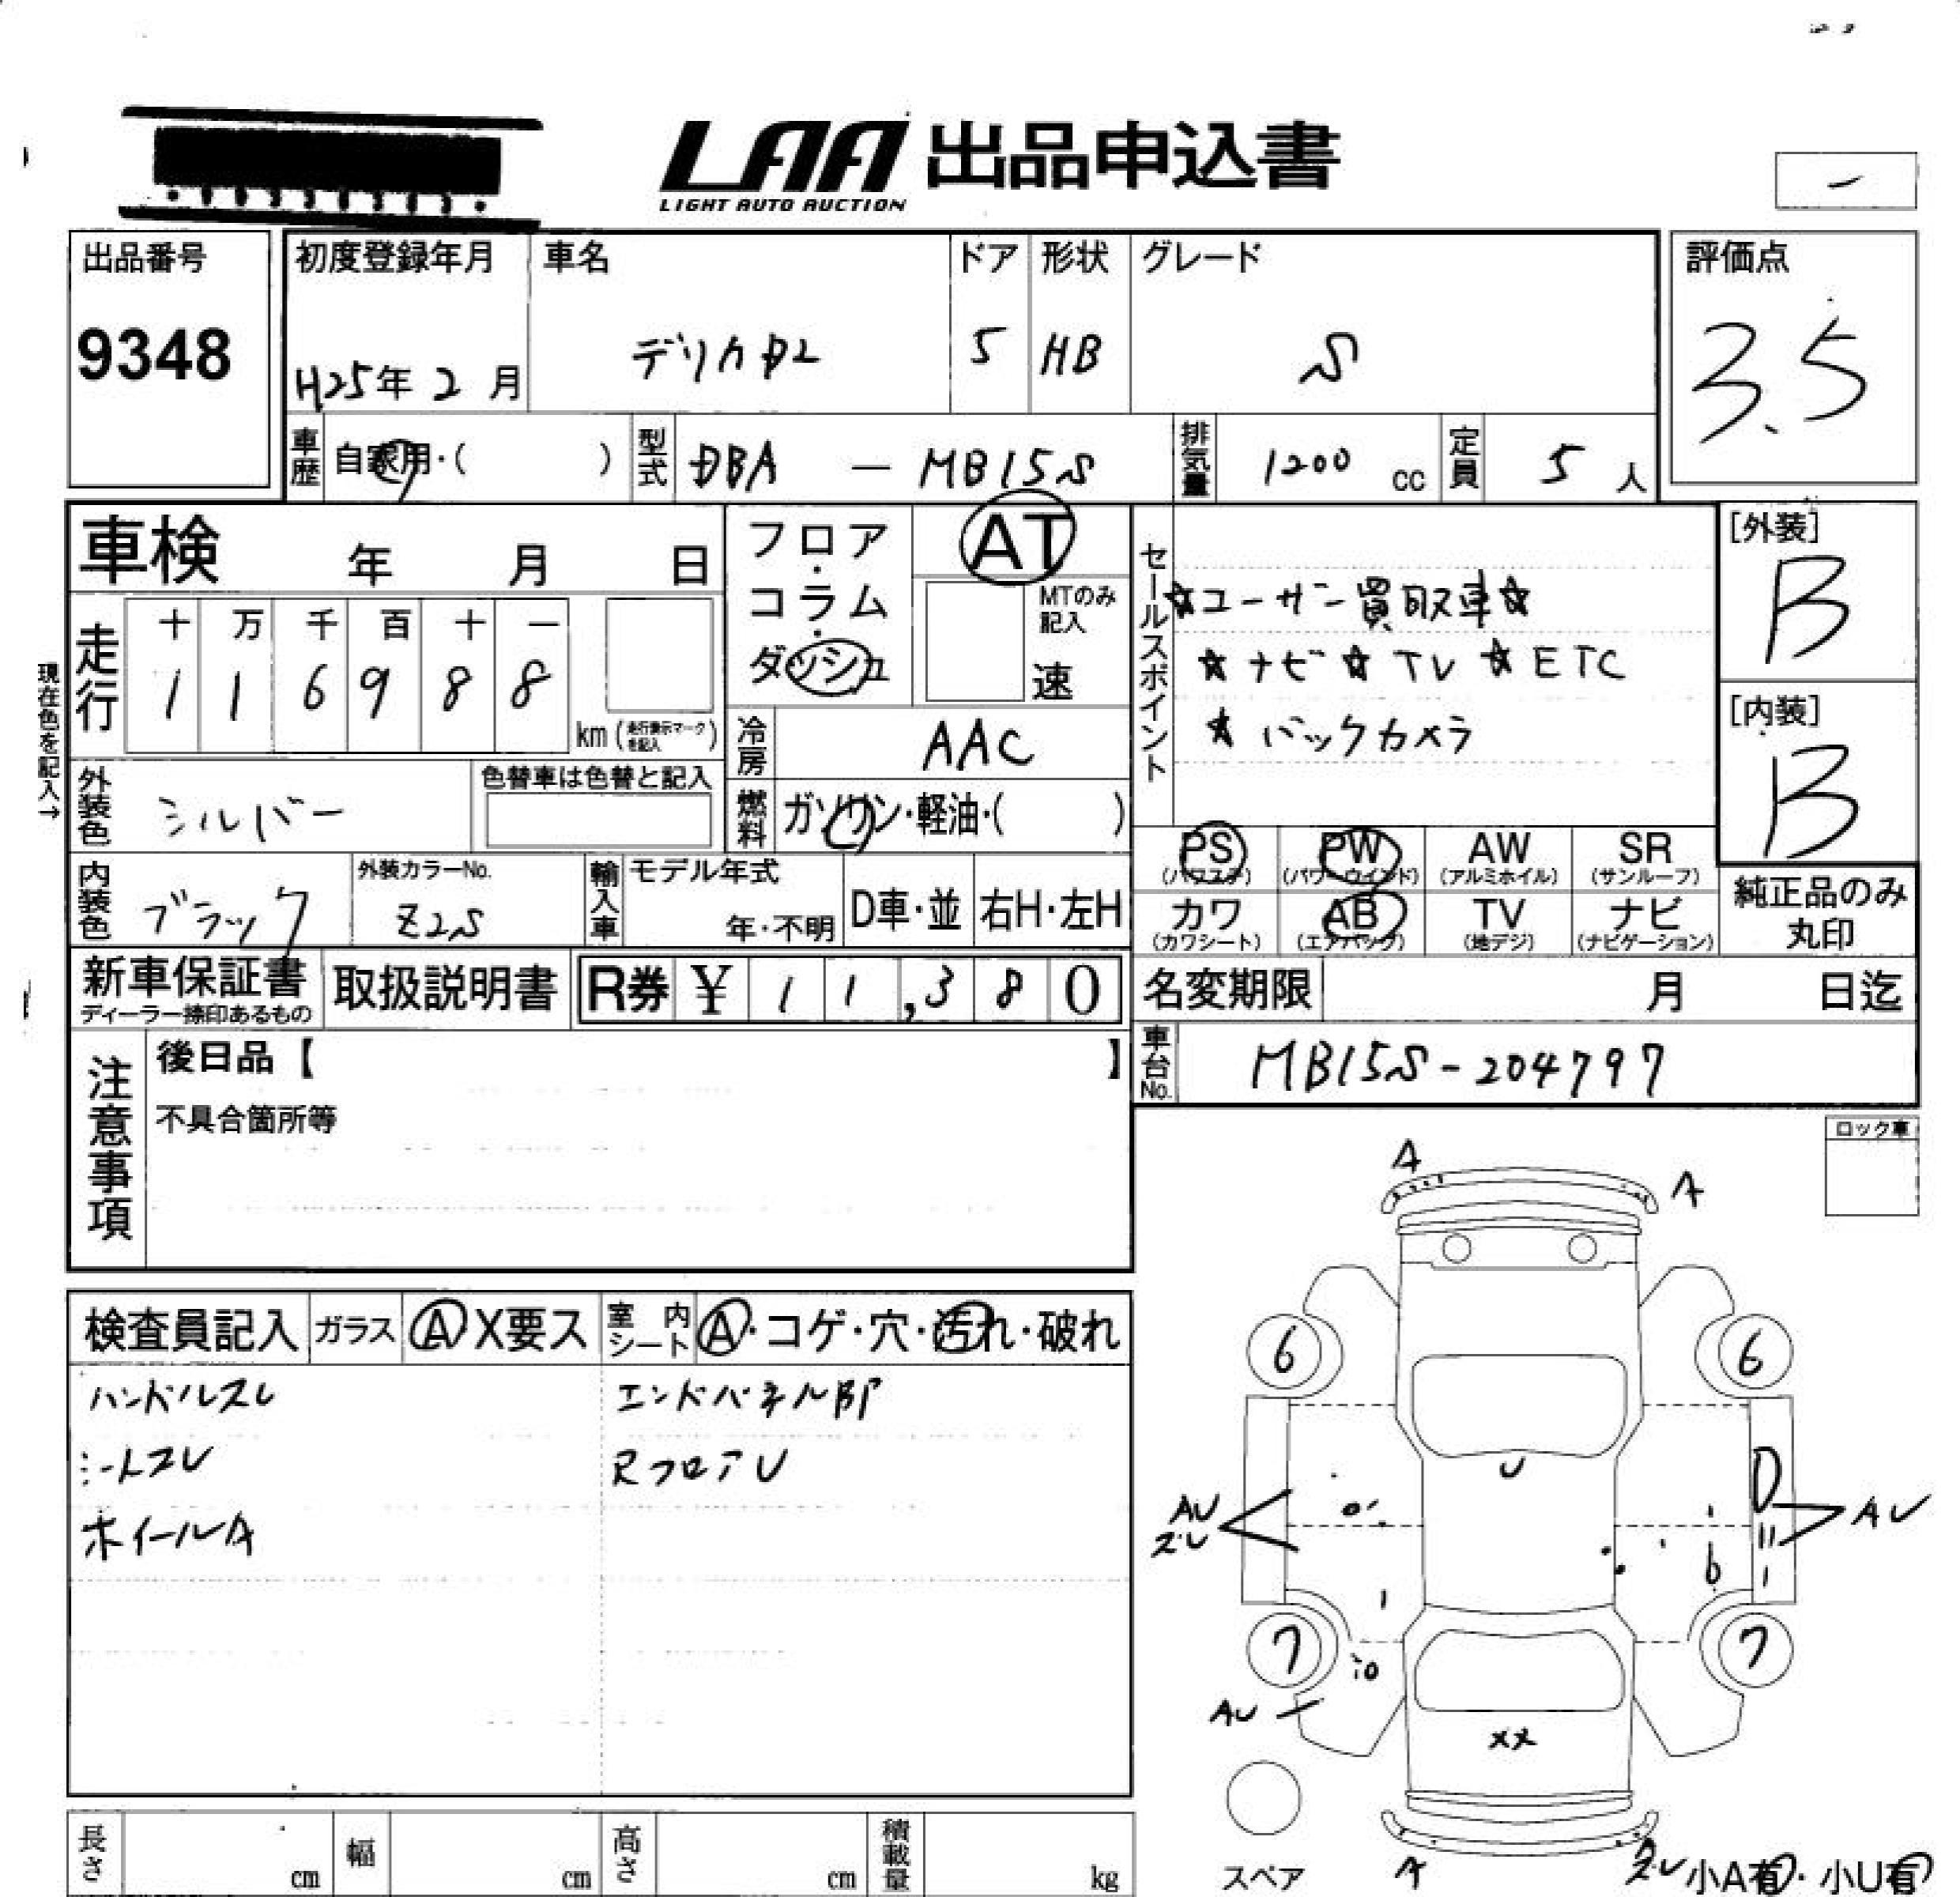 LAA 出品申込書
LIGHT AUTO AUCTION
出品番号
9348
初度登録年月
H25年 2 月
車名
デリカD2
ドア
5
形状
HB
グレード
S
評価点
3.5
車歴
自家用・( )
型式
DBA — MB15S
排気量
1200 cc
定員
5 人
車検 年 月 日
走行
十 万 千 百 十 一
1 1 6 9 8 8
km (走行表示マークを記入)
現在色を記入→
外装色
シルバー
色替車は色替と記入
内装色
ブラック
外装カラーNo.
Z2S
フロア・コラム・ダッシュ
AT
MTのみ記入
速
冷房
AAC
燃料
ガソリン・軽油・( )
輸入車
モデル年式
年・不明
D車・並
右H・左H
セールスポイント
☆ユーザー買取車☆
☆ナビ☆TV☆ETC
☆バックカメラ
[外装]
B
[内装]
B
PS (パワステ)
PW (パワーウインド)
AW (アルミホイル)
SR (サンルーフ)
カワ (カワシート)
AB (エアバック)
TV (地デジ)
ナビ (ナビゲーション)
純正品のみ
丸印
新車保証書
ディーラー捺印あるもの
取扱説明書
R券 ¥ 11,380
名変期限 月 日迄
車台No.
MB15S-204797
注意事項
後日品【 】
不具合箇所等
ロック車
検査員記入
ガラス
A X要ス
室内シート
A・コゲ・穴・汚れ・破れ
ハンドルスレ
シートスレ
ホイールA
エンドパネル部
RフロアU
A
A
6
6
U
AU
ズレ
AU
7
7
AU
XX
スペア
A
ズレ
小A有・小U有
長さ cm
幅 cm
高さ cm
積載量 kg